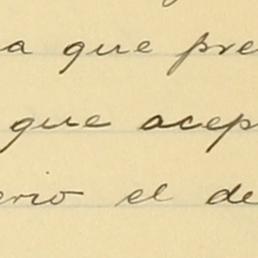 a que pre
que acep
erio el de